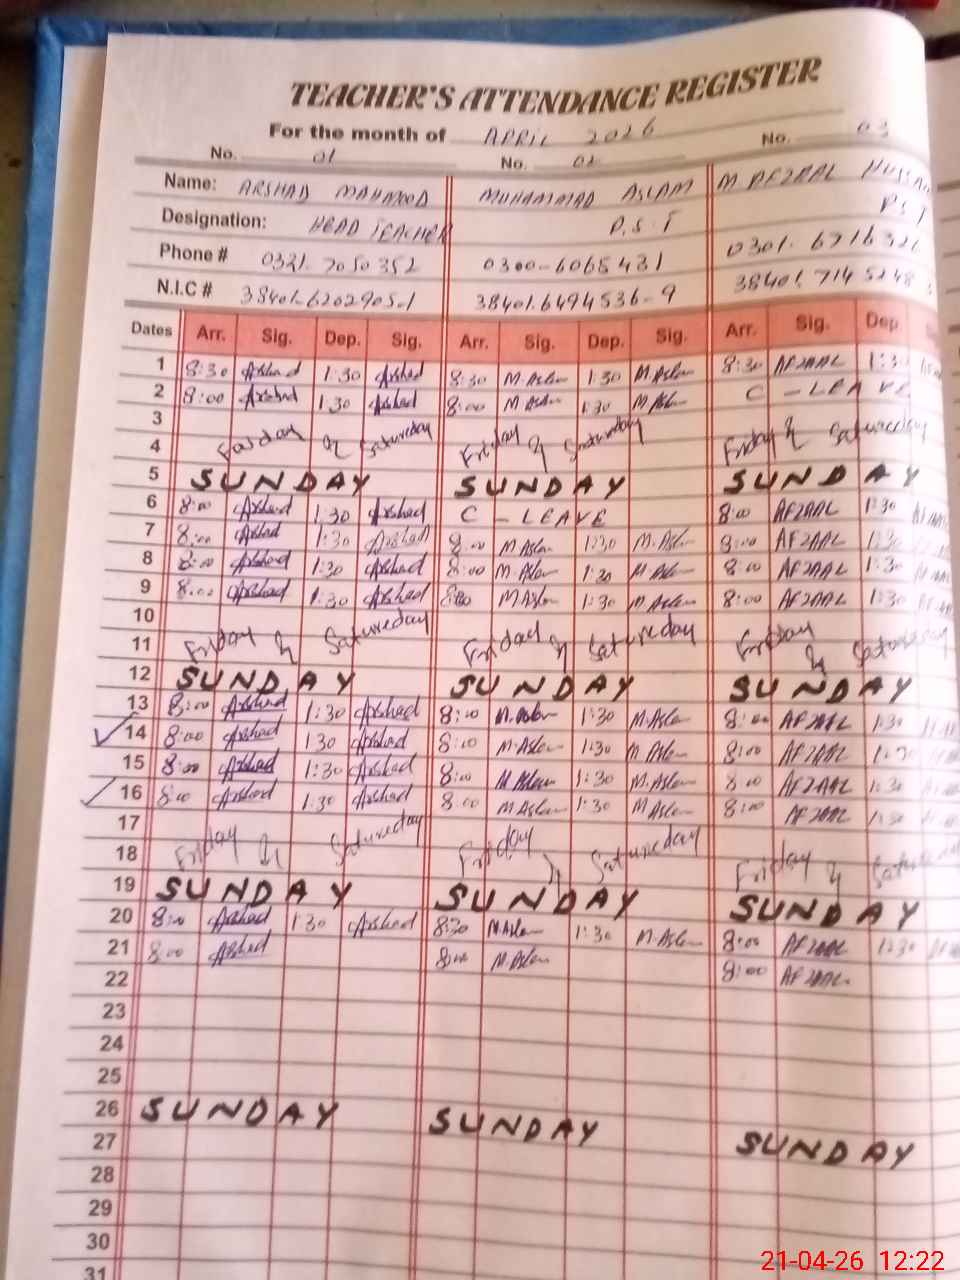 TEACHER'S ATTENDANCE REGISTER
For the month of APRIL 2026
No. 01 No. 02 No. 03
Name: ARSHAD MAHMOOD MUHAMMAD ASLAM M AFZAAL HUSSAI
Designation: HEAD TEACHER P.S.T P.S.T
Phone # 0321.7050352 0300-6065431 0301.6716326
N.I.C # 38401-6202905-1 38401.6494536-9 38401.7145248
Dates Arr. Sig. Dep. Sig. Arr. Sig. Dep. Sig. Arr. Sig. Dep
1 8:30 Arshad 1:30 Arshad 8:30 M.Aslam 1:30 M.Aslam 8:30 AFZAAL 1:30
2 8:00 Arshad 1:30 Arshad 8:00 M Aslam 1:30 M Aslam C - LEAVE
3
4 Farday & Satureday Friday & Satureday Friday & Satureday
5 SUNDAY SUNDAY SUNDAY
6 8:00 Arshad 1:30 Arshad C - LEAVE 8:00 AFZAAL 1:30
7 8:00 Arshad 1:30 Arshad 8:00 M Aslam 1:30 M.Aslam 8:00 AFZAAL 1:30
8 8:00 Arshad 1:30 Arshad 8:00 M.Aslam 1:30 M.Aslam 8:00 AFZAAL 1:30
9 8:00 Arshad 1:30 Arshad 8:00 M Aslam 1:30 M Aslam 8:00 AFZAAL 1:30
10
11 Friday & Satureday Friday & Satureday Friday & Satureday
12 SUNDAY SUNDAY SUNDAY
13 8:00 Arshad 1:30 Arshad 8:00 M.Aslam 1:30 M.Aslam 8:00 AFZAAL 1:30
14 8:00 Arshad 1:30 Arshad 8:00 M.Aslam 1:30 M Aslam 8:00 AFZAAL 1:30
15 8:00 Arshad 1:30 Arshad 8:00 M Aslam 1:30 M.Aslam 8:00 AFZAAL 1:30
16 8:00 Arshad 1:30 Arshad 8:00 M Aslam 1:30 M Aslam 8:00 AFZAAL 1:30
17
18 Friday & Satureday Friday & Satureday Friday &
19 SUNDAY SUNDAY SUNDAY
20 8:00 Arshad 1:30 Arshad 8:30 M.Aslam 1:30 M.Aslam 8:00 AFZAAL 1:30
21 8:00 Arshad 8:00 M.Aslam 8:00 AFZAAL
22
23
24
25
26 SUNDAY SUNDAY SUNDAY
27
28
29
30
31
21-04-26 12:22